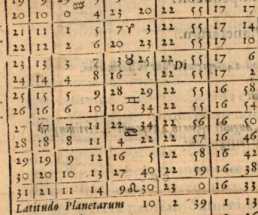 20 10 0 4 13 20 22 55 17 10
21 11 1 5 7 ♈ 3 22 55 17 14
22 12 2 6 20 23 22 55 17 11
23 13 3 7 ♉ 25 22 55 17 6
24 14 4 8 16 5 22 55 17 2
25 15 5 9 28 29 22 55 16 58
26 16 6 10 10 ♊ 34 22 55 16 54
27 17 7 11 22 34 22 56 16 50
28 18 8 11 4 ♋ 22 22 57 16 46
29 19 9 12 16 5 22 58 16 42
30 20 10 13 27 40 22 59 16 38
31 21 11 14 9 ♌ 30 23 0 16 33
Latitudo Planetarum 10 2 39 1 13